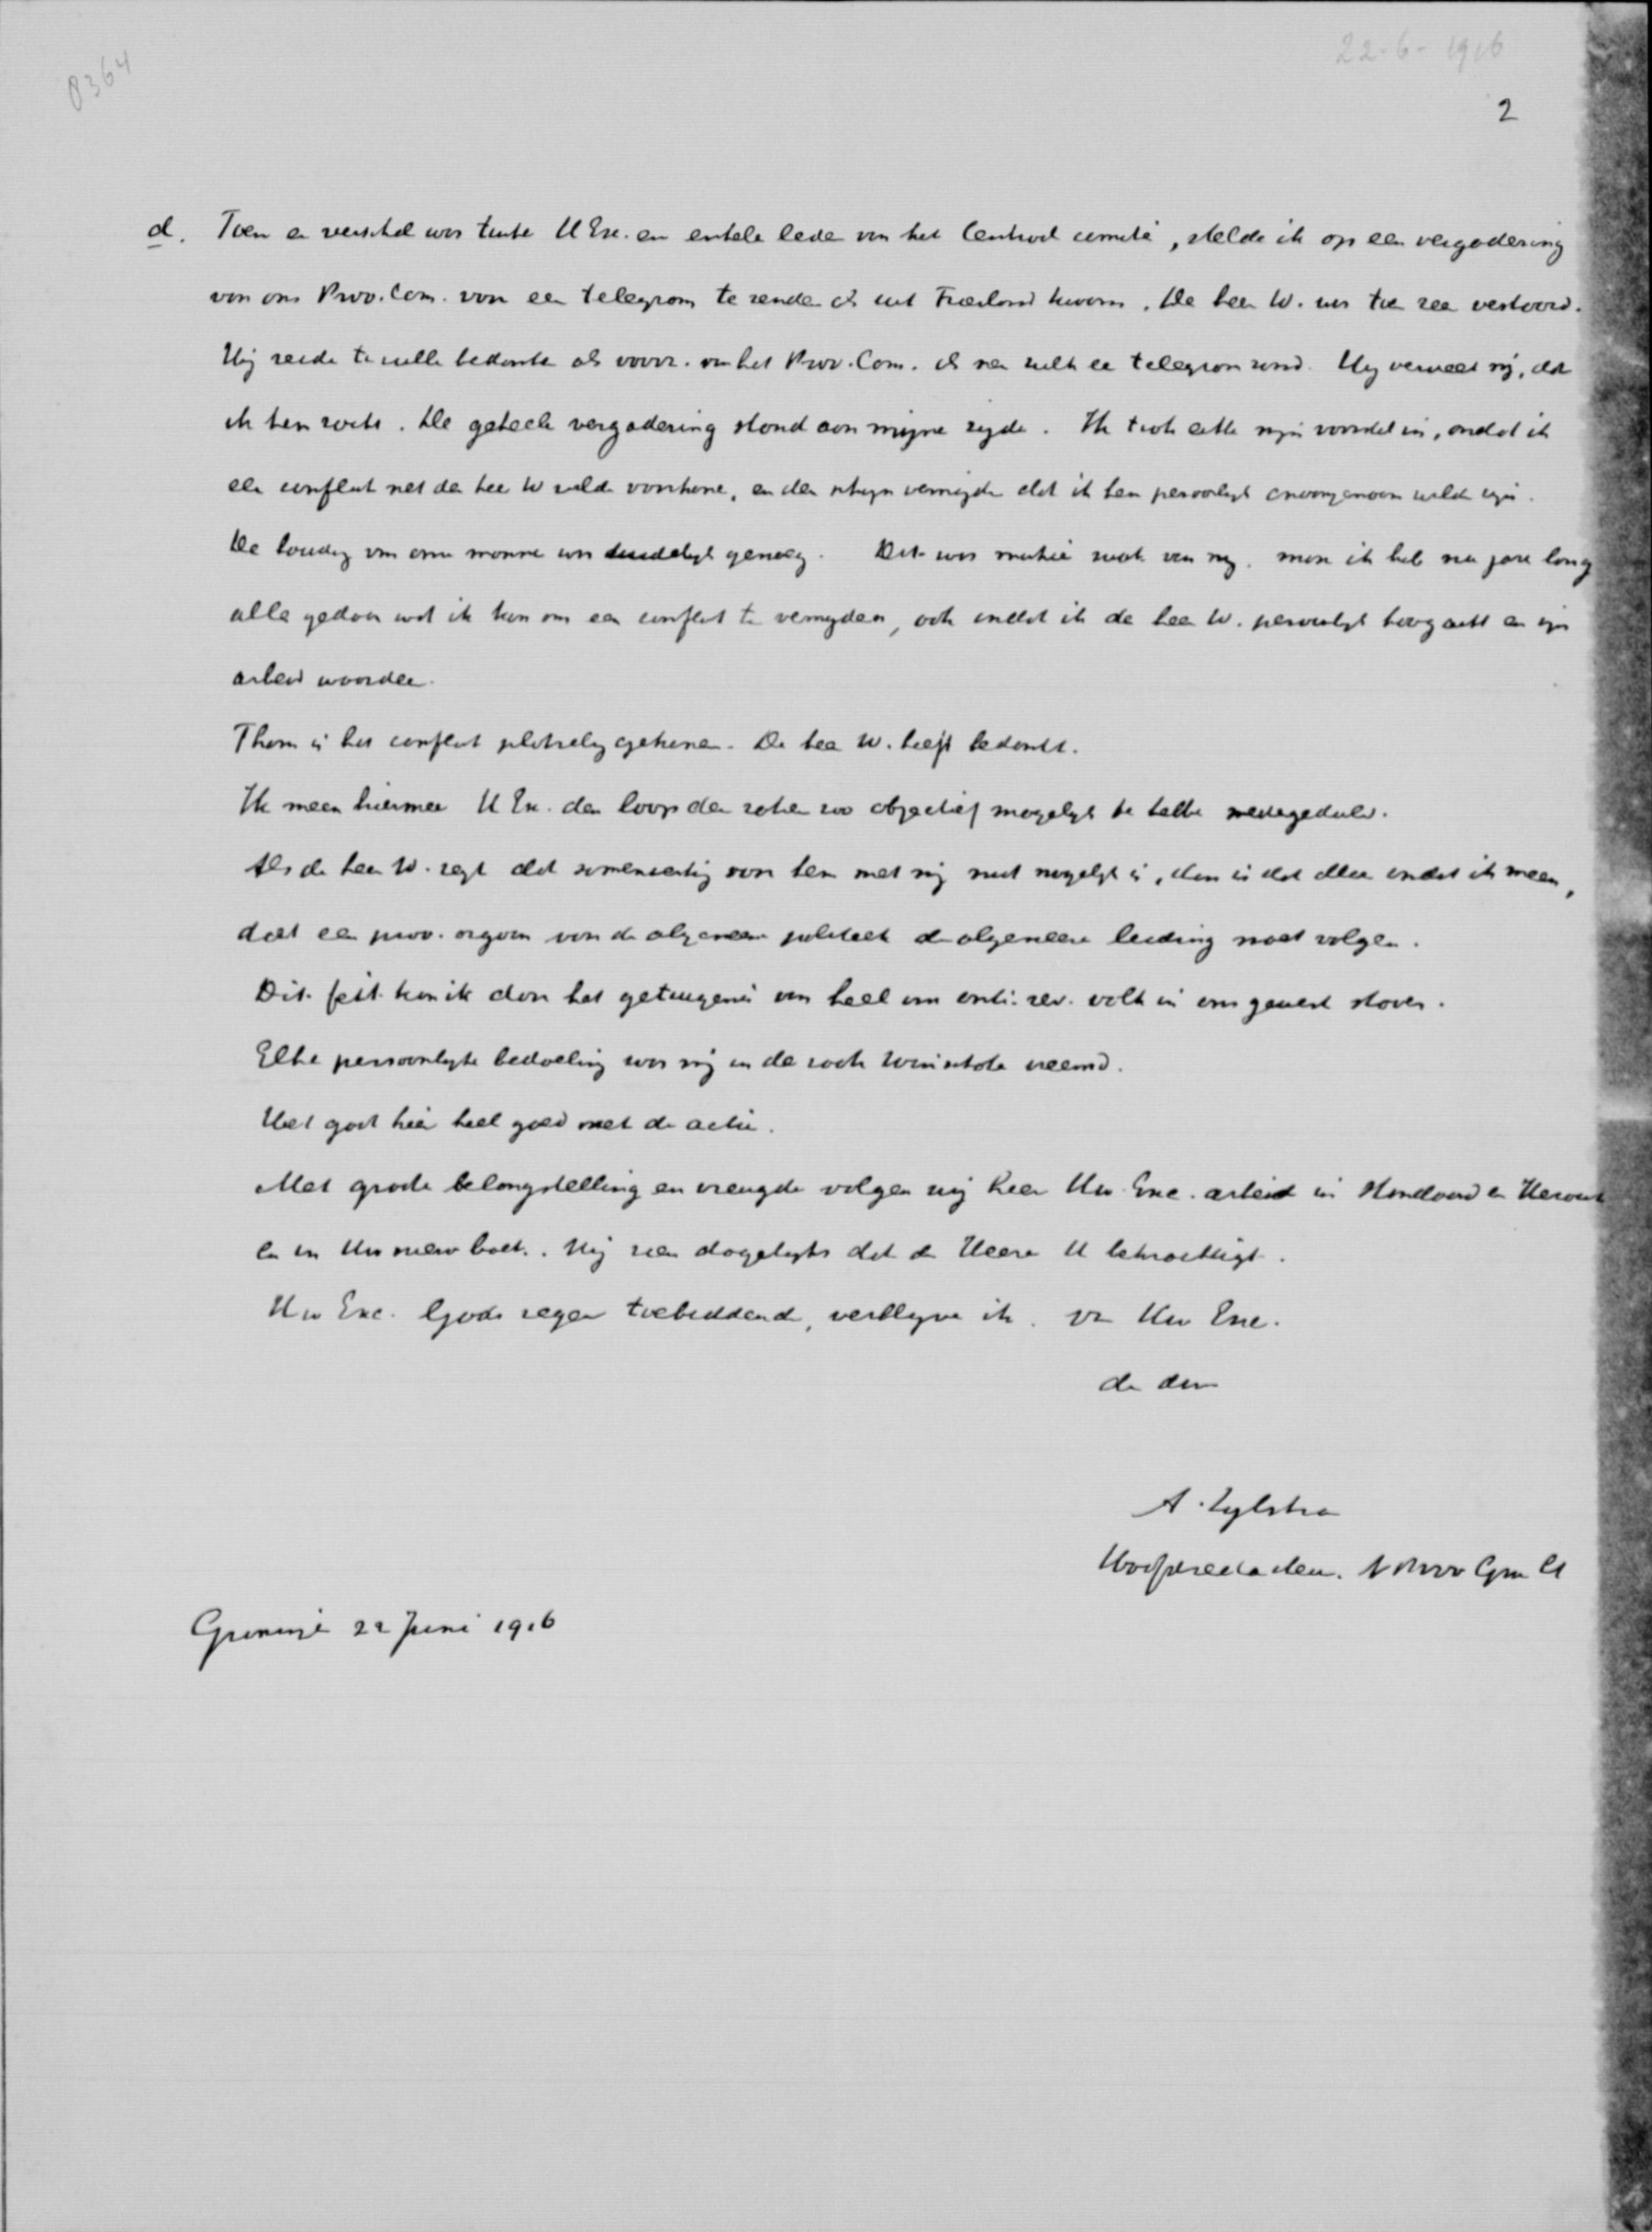 0364
22-6-1916
2
d. Toen er verschil was tusschen U Exc. en enkele leden van het Centraal comité, stelde ik op een vergadering
van ons Prov. Com. voor een telegram te zenden als uit Friesland kwam. De heer W. was toen zeer verstoord.
Hij zeide te zullen bedanken als voorz. van het Prov. Com. als men zulk een telegram zond. Hij verweet mij, dat
ik hem zocht. De geheele vergadering stond aan mijne zijde. Ik trok echter mijn voorstel in, omdat ik
een conflict met den heer W wilde voorkomen, en den schijn vermijden dat ik hem persoonlijk onaangenaam wilde zijn.
De houding van onze mannen was duidelijk genoeg. Dit was zwak van mij. maar ik heb nu jaren lang
alles gedaan wat ik kon om een conflict te vermijden, ook omdat ik de heer W. persoonlijk hoog acht en zijn
arbeid waardeer.
Thans is het conflict plotseling gekomen. De heer W. heeft bedankt.
Ik meen hiermee U Exc. den loop der zaken zoo objectief mogelijk te hebben medegedeeld.
Als de heer W. zegt dat samenwerking van hem met mij niet mogelijk is, dan is dat alleen omdat ik meen,
dat een prov. orgaan van de algemeene politiek de algemeene leiding moet volgen.
Dit feit kan ik door het getuigenis van heel ons anti-rev. volk in ons gewest staven.
Elke persoonlijke bedoeling was mij in de zaak Winschoten vreemd.
Het gaat hier heel goed met de actie.
Met groote belangstelling en vreugde volgen wij hier Uw Exc. arbeid in Standaard en Heraut
en in Uw nieuw boek. Wij zien dagelijks dat de Heere U bekrachtigt.
Uw Exc. Gods zegen toebiddend, verblijve ik. van Uw Exc.
de dw
A. Zylstra
Hoofdredacteur. N Prov Gron Ct
Groningen 22 Juni 1916